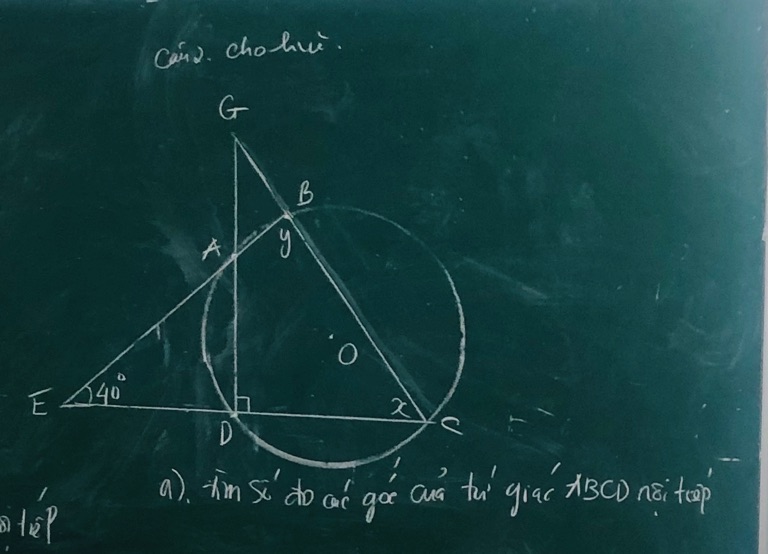 Câu 2. Cho hình.
G
B
A
y
O
E
40°
x
D
C
a). Tìm số đo các góc của tứ giác ABCD nội tiếp
ội tiếp